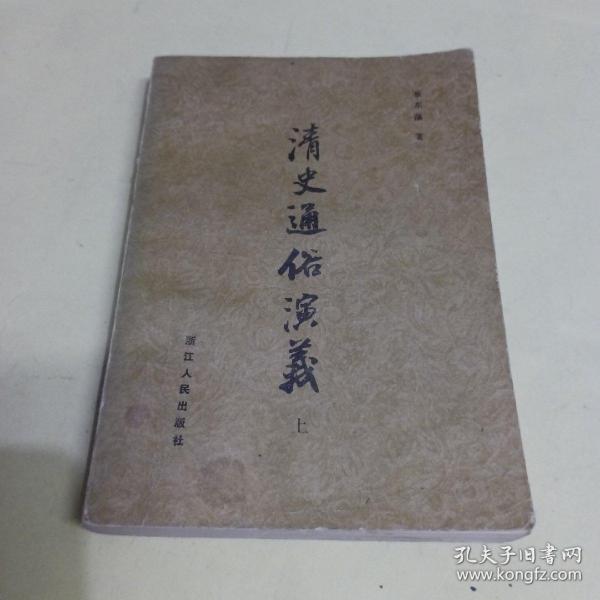 蔡东藩 著
清史通俗演義
上
浙江人民出版社
孔夫子旧书网
www.kongfz.com